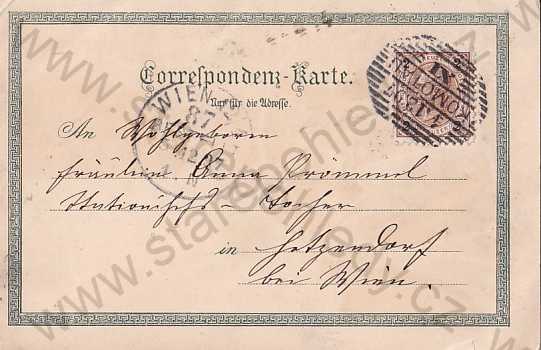 Correspondenz-Karte.
Nur für die Adresse.
WIEN
87
An Wohlgeboren
Fräulein Anna Prömmel
Stationschefs-Tochter
in Hetzendorf
bei Wien.
www.stare-pohledy.cz